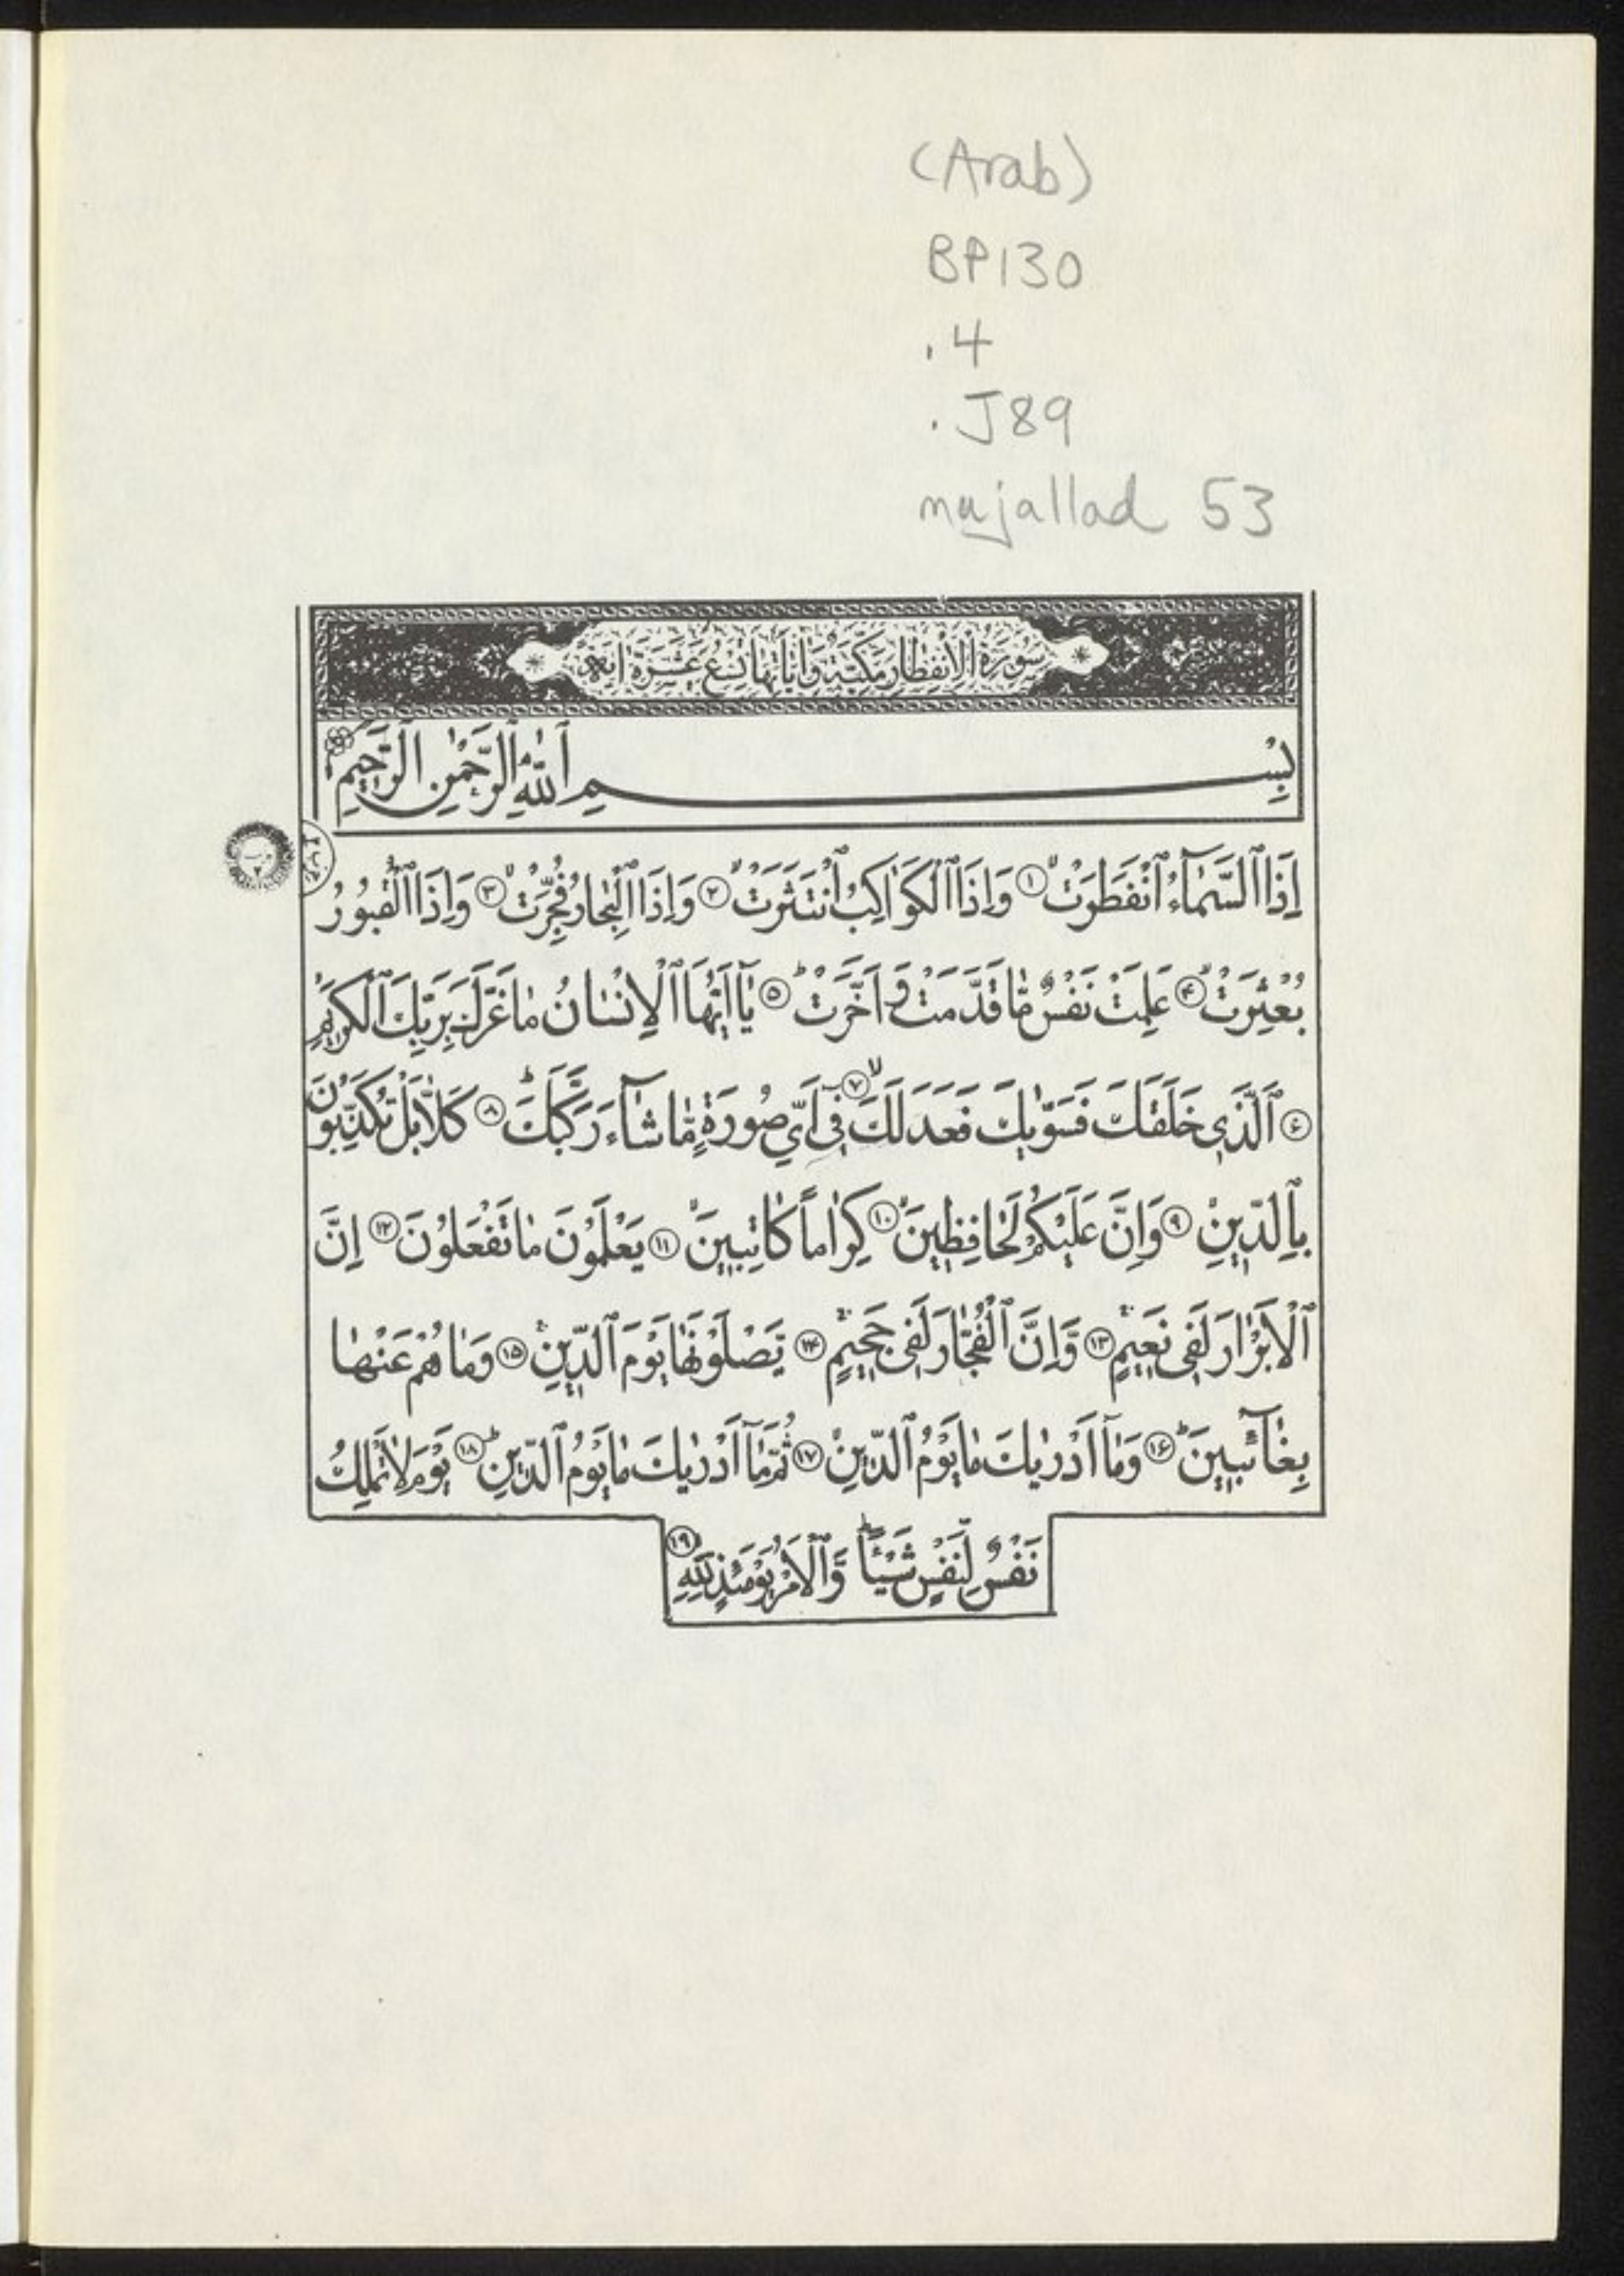 (Arab)
BP130
.4
.J89
mujallad 53
سُورَةُ الْاِنْفِطَارِ مَكِّيَّةٌ وَاٰيَاتُهَا تِسْعَ عَشَرَةَ اٰيَة
بِسْمِ ٱللّٰهِ ٱلرَّحْمٰنِ ٱلرَّحِيمِ
اِذَا ٱلسَّمَآءُ ٱنْفَطَرَتْ ۙ ﴿۱﴾ وَاِذَا ٱلْكَوَاكِبُ ٱنْتَثَرَتْ ۙ ﴿۲﴾ وَاِذَا ٱلْبِحَارُ فُجِّرَتْ ۙ ﴿۳﴾ وَاِذَا ٱلْقُبُورُ
بُعْثِرَتْ ۙ ﴿۴﴾ عَلِمَتْ نَفْسٌ مَّا قَدَّمَتْ وَ اَخَّرَتْ ؕ ﴿۵﴾ يَٓا اَيُّهَا ٱلْاِنْسَانُ مَا غَرَّكَ بِرَبِّكَ ٱلْكَرِيمِ ۙ
﴿۶﴾ ٱلَّذِي خَلَقَكَ فَسَوّٰيكَ فَعَدَلَكَ ۙ ﴿۷﴾ فِيٓ اَيِّ صُورَةٍ مَّا شَآءَ رَكَّبَكَ ؕ ﴿۸﴾ كَلَّا بَلْ تُكَذِّبُونَ
بِٱلدِّينِ ۙ ﴿۹﴾ وَاِنَّ عَلَيْكُمْ لَحَافِظِينَ ۙ ﴿۱۰﴾ كِرَاماً كَاتِبِينَ ۙ ﴿۱۱﴾ يَعْلَمُونَ مَا تَفْعَلُونَ ﴿۱۲﴾ اِنَّ
ٱلْاَبْرَارَ لَفِي نَعِيمٍ ۚ ﴿۱۳﴾ وَّاِنَّ ٱلْفُجَّارَ لَفِي جَحِيمٍ ۚ ﴿۱۴﴾ يَّصْلَوْنَهَا يَوْمَ ٱلدِّينِ ۚ ﴿۱۵﴾ وَمَا هُمْ عَنْهَا
بِغَآئِبِينَ ؕ ﴿۱۶﴾ وَمَآ اَدْرٰيكَ مَا يَوْمُ ٱلدِّينِ ۙ ﴿۱۷﴾ ثُمَّ مَآ اَدْرٰيكَ مَا يَوْمُ ٱلدِّينِ ؕ ﴿۱۸﴾ يَوْمَ لَا تَمْلِكُ
نَفْسٌ لِّنَفْسٍ شَيْئاً ؕ وَّٱلْاَمْرُ يَوْمَئِذٍ لِلّٰهِ ﴿۱۹﴾